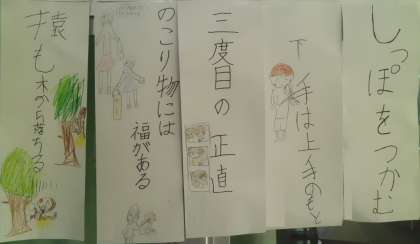 しっぽをつかむ
下手は上手のもと
三度目の正直
のこり物には
福がある
猿も木から落ちる